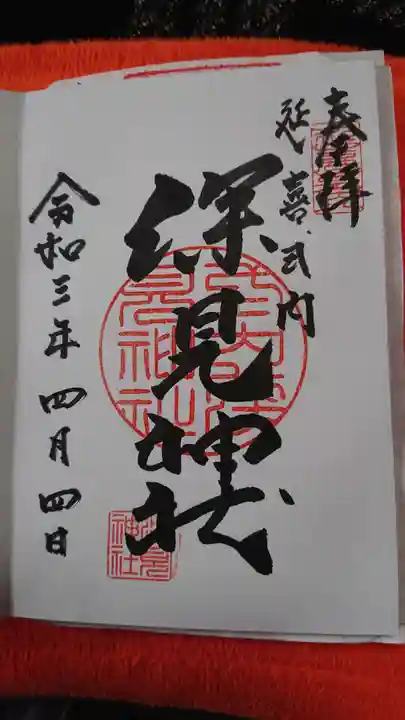 奉拝
延喜式内
深見神社
令和三年四月四日
深見
神社